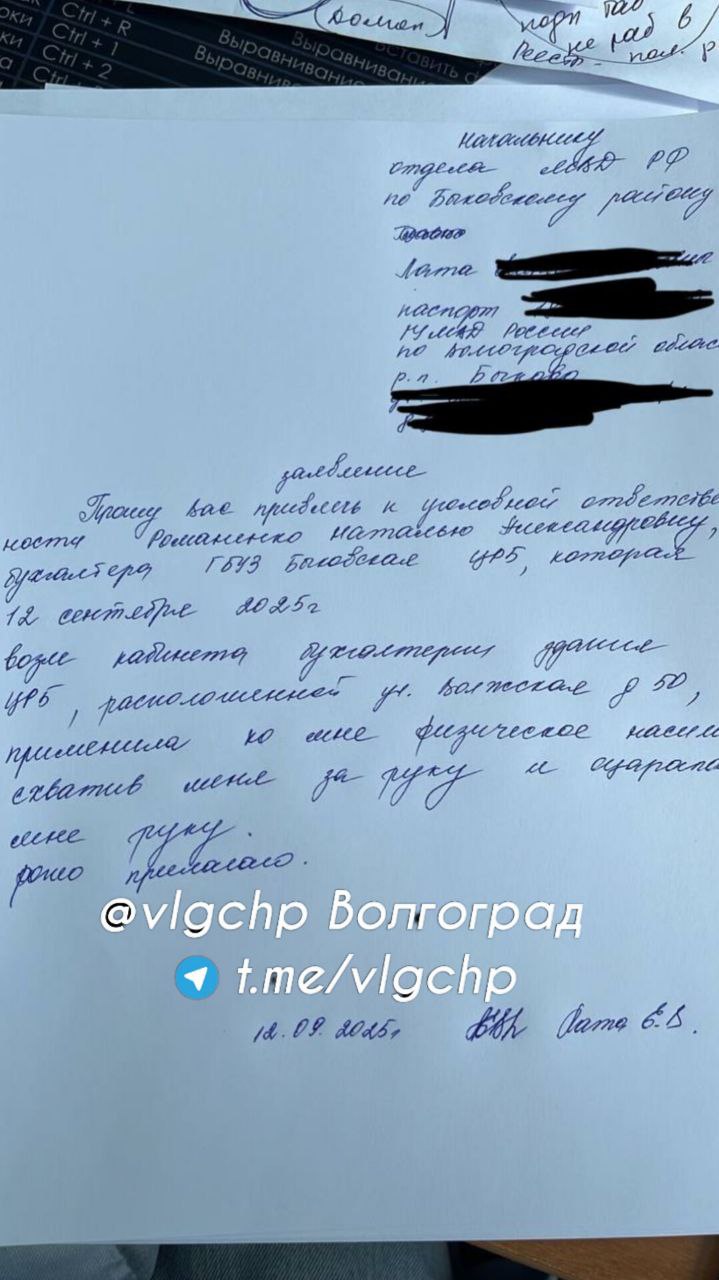 Ctrl + R
Ctrl + 1
Ctrl + 2
Выравнивание
Выравнивание
Выравнивание
Вставить
не раб в
Реестр
начальнику
отдела МВД РФ
по Быковскому району
Лата
паспорт
ГУ МВД России
по Волгоградской облас
р.п. Быково
заявление
Прошу Вас привлечь к уголовной ответстве
ности Романенко Наталью Александровну,
бухгалтера ГБУЗ Быковская ЦРБ, которая
12 сентября 2025г
возле кабинета бухгалтерии здания
ЦРБ, расположенной ул. Волжская д 50,
применила ко мне физическое насил
схватив меня за руку и оцарапа
мне руку.
фото прилагаю.
@vlgchp Волгоград
t.me/vlgchp
12.09.2025г Лата Е.В.